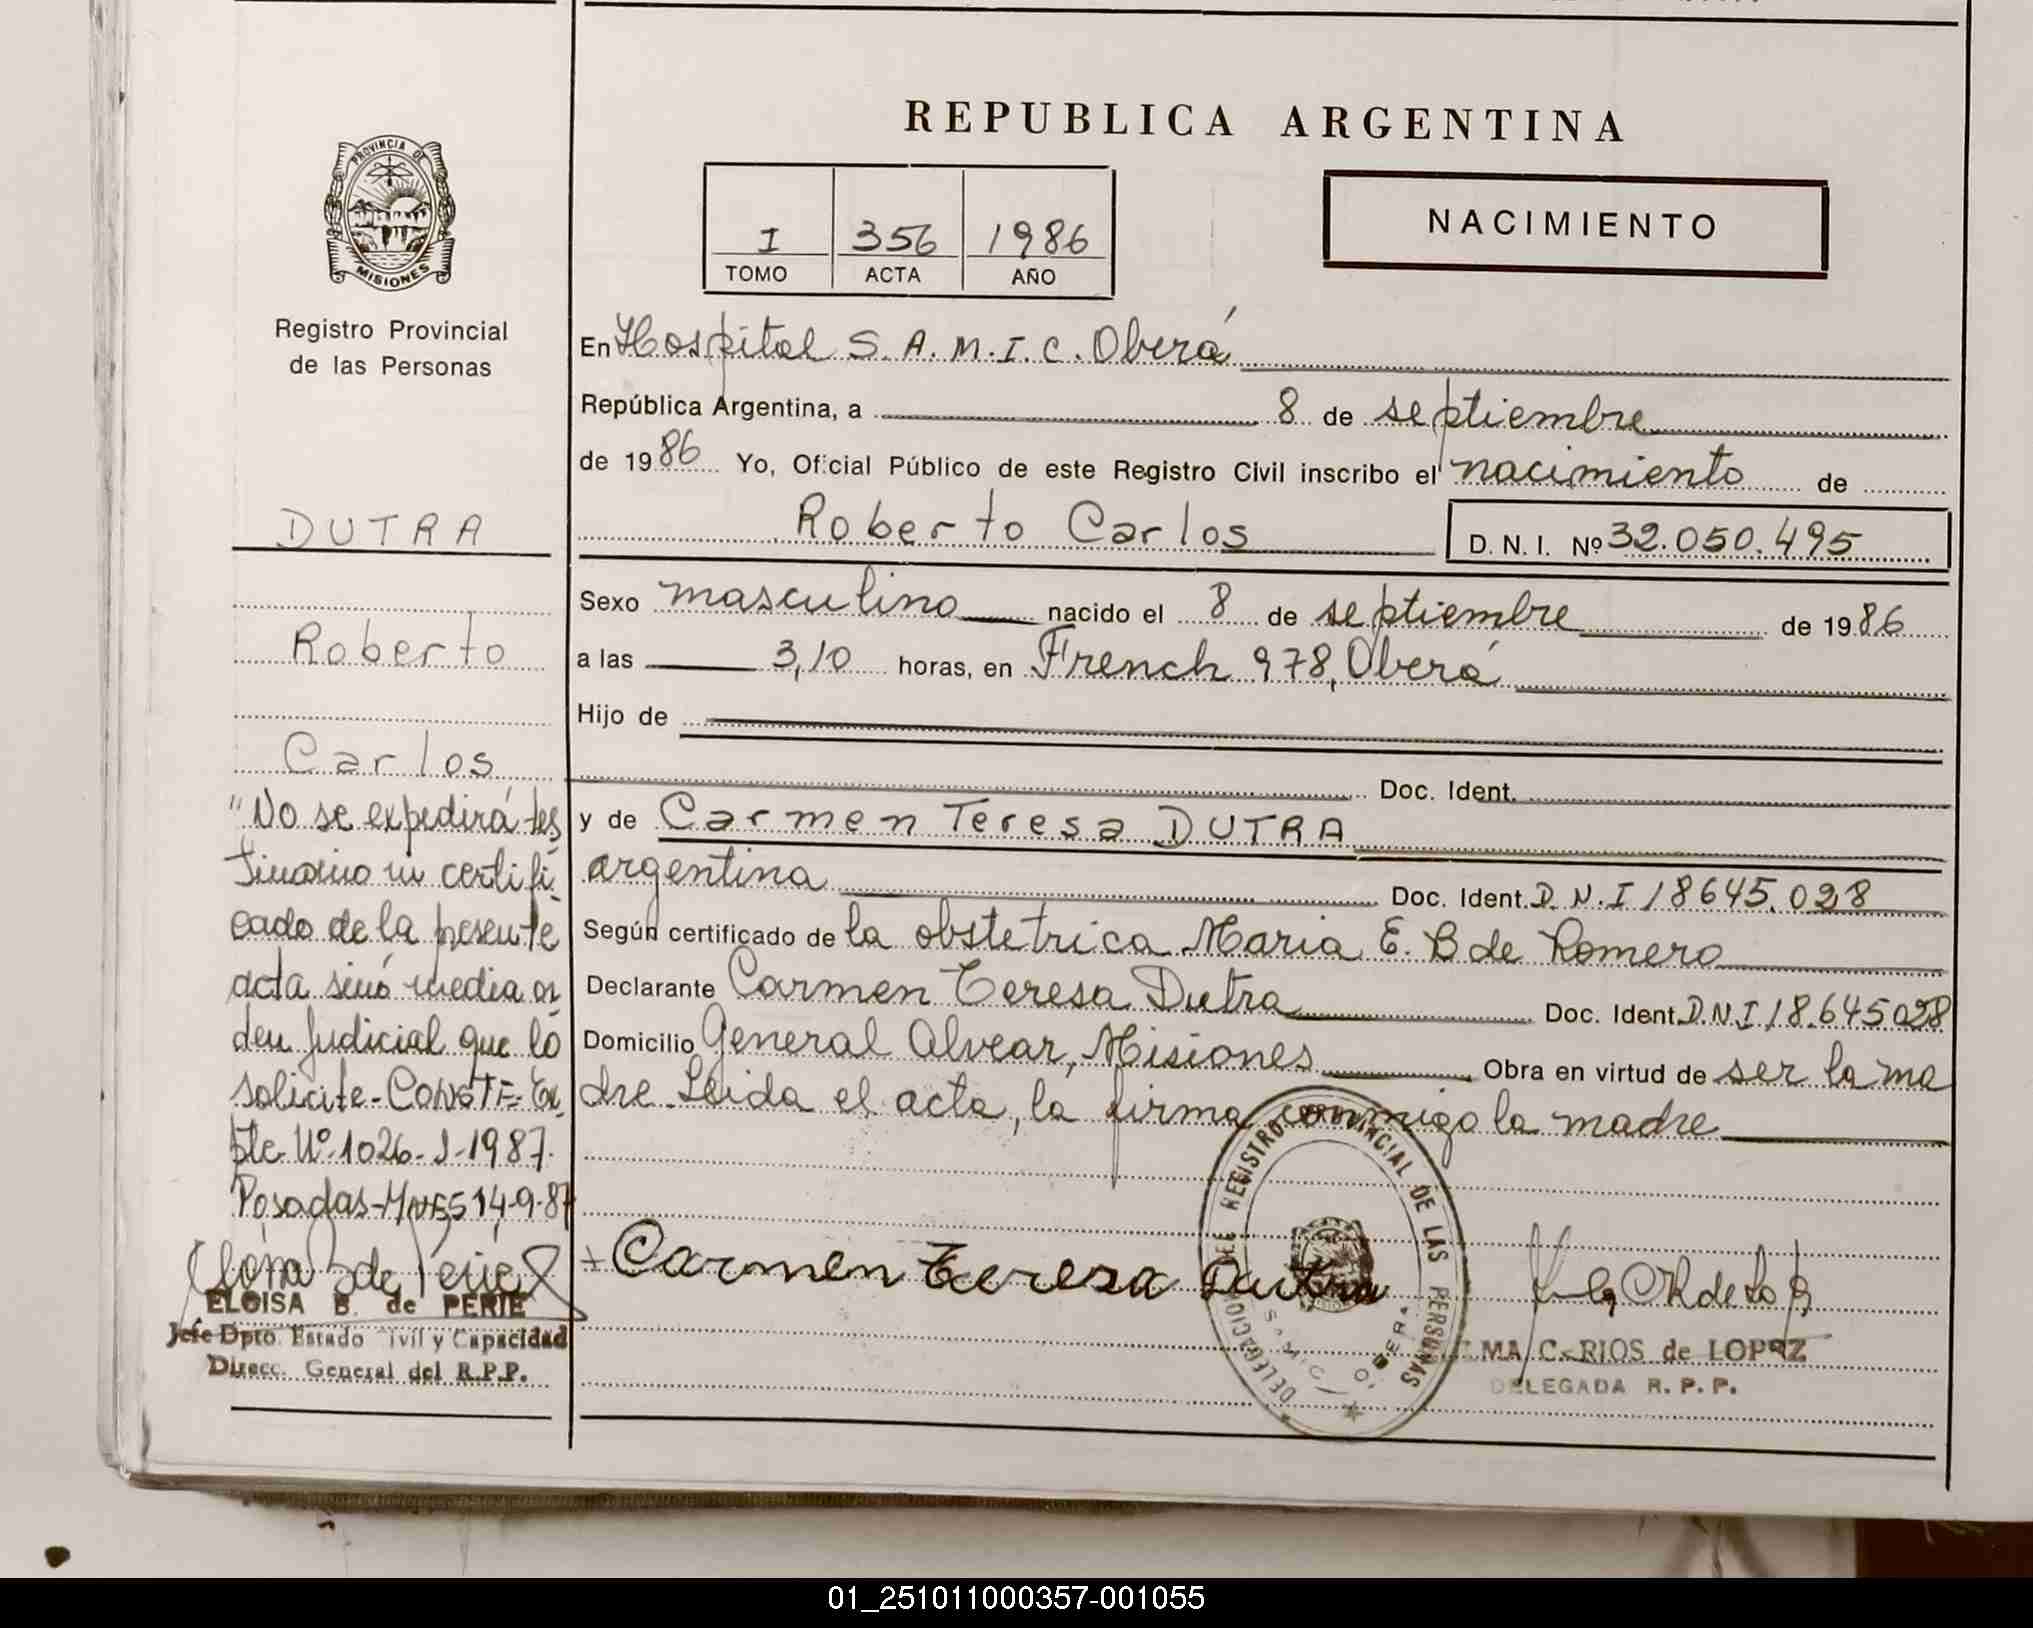 REPUBLICA ARGENTINA
PROVINCIA DE
MISIONES
I 356 1986
TOMO ACTA AÑO
NACIMIENTO
Registro Provincial
de las Personas
DUTRA
Roberto
Carlos
"No se expedirá tes
timonio ni certifi
cado de la presente
acta sinó media or
den Judicial que lo
solicite- CONSTE- Ex
pte Nº 1026-J-1987.
Posadas-Mnes 14-9-87
ELOISA B. de PERIE
Jefe Dpto. Estado Civil y Capacidad
Direcc. General del R.P.P.
En Hospital S.A.M.I.C. Oberá
República Argentina, a 8 de septiembre
de 1986 Yo, Oficial Público de este Registro Civil inscribo el nacimiento de
Roberto Carlos D. N. I. Nº 32.050.495
Sexo masculino nacido el 8 de septiembre de 1986
a las 3,10 horas, en French 978, Oberá
Hijo de
Doc. Ident.
y de Carmen Teresa DUTRA
argentina Doc. Ident. D.N.I 18645.028
Según certificado de la obstetrica Maria E. B de Romero
Declarante Carmen Teresa Dutra Doc. Ident. D.N.I 18.645028
Domicilio General Alvear, Misiones Obra en virtud de ser la ma
dre. Leida el acta, la firma conmigo la madre
+ Carmen Teresa Dutra
REGISTRO PROVINCIAL DE LAS PERSONAS
DELEGACION
S.A.M.I.C. OBERA
RIOS de LOPEZ
DELEGADA R. P. P.
01_251011000357-001055